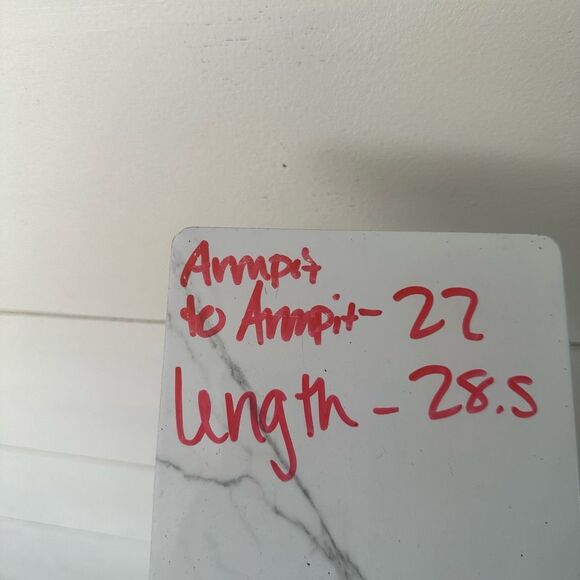 Armpit
to Armpit- 22
length - 28.5